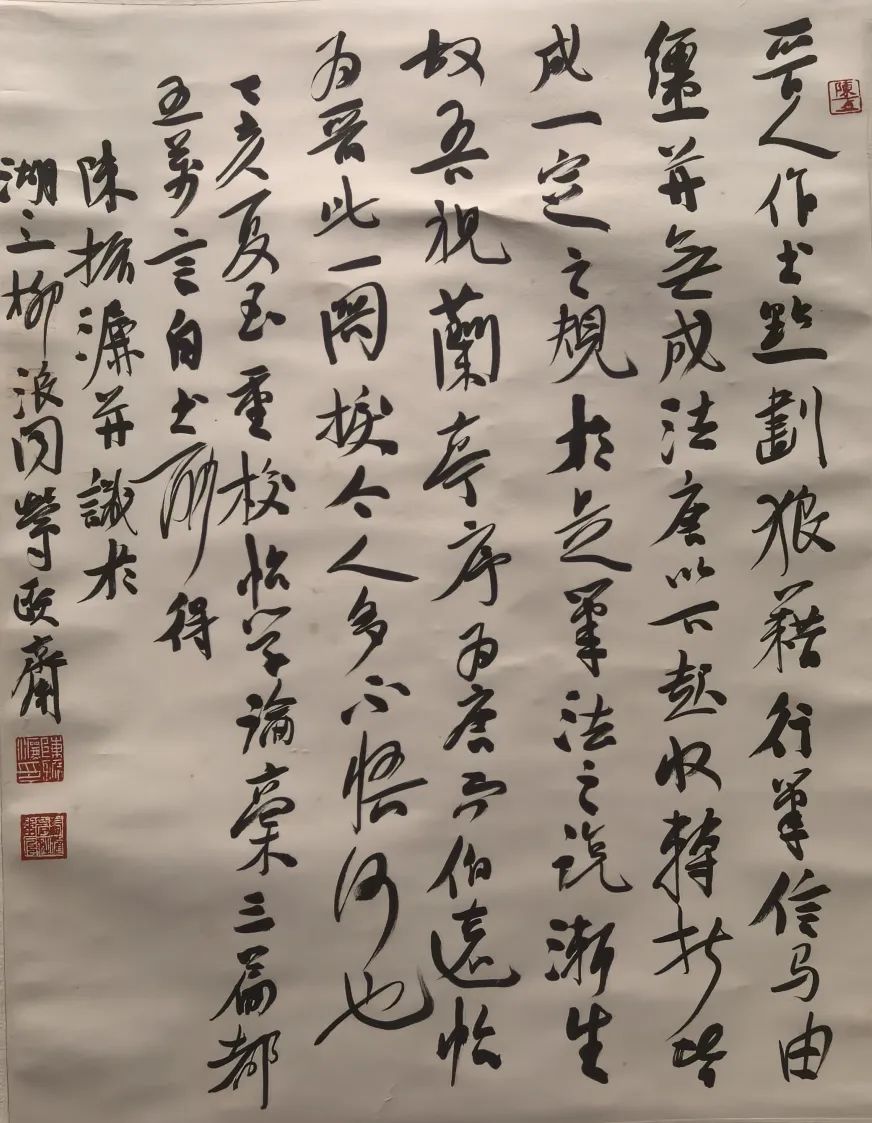 晋人作书點劃狼藉行筆信马由
繮并無成法唐以下起收轉折皆
成一定之規於是筆法之说漸生
故吾視蘭亭序为唐而伯遠帖
为晋此一関捩今人多不悟何也
丁亥夏五重校帖学論稾三篇都
五萬言自书所得
陳振濂并識於
湖上柳浪闻莺
齋